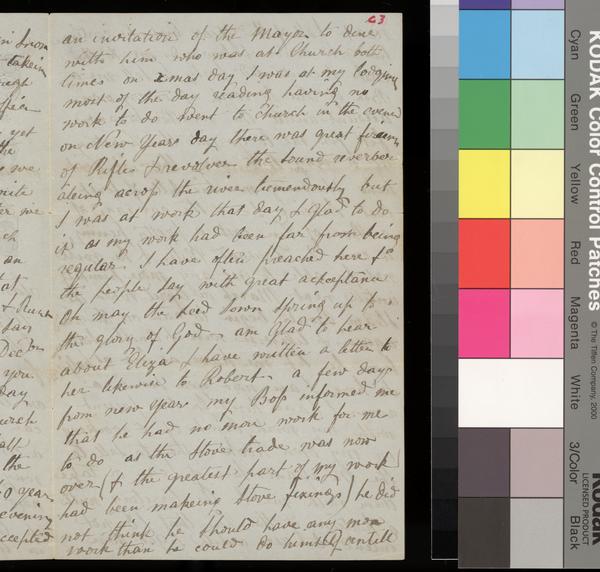 63
an invitation of the Mayor to dine
with him who was at Church both
times on xmas day I was at my lodging
most of the day reading having no
work to do went to church in the evened
on New Years day there was great fireing
of Rifles & revolvers the sound reverber
ateing across the river tremendously but
I was at work that day & Glad to do
it as my work had been far from being
regular. I have often preached here &
the people say with great acceptance
Oh may the seed sown spring up to
the glory of God - am Glad to hear
about Eliza I have written a letter to
her likewise to Robert - a few days
from new years my Boss informed me
that he had no more work for me
to do as the Stove trade was now
over (& the greatest part of my work
had been makeing Stove fixings) he did
not think he should have any more
work than he could do himself untill
takein
yet
the
we
me
an
& 
you
day
the
0 years
evening
ccepted
KODAK Color Control Patches
© The Tiffen Company, 2000
Cyan
Green
Yellow
Red
Magenta
White
3/Color
Black
Kodak
LICENSED PRODUCT